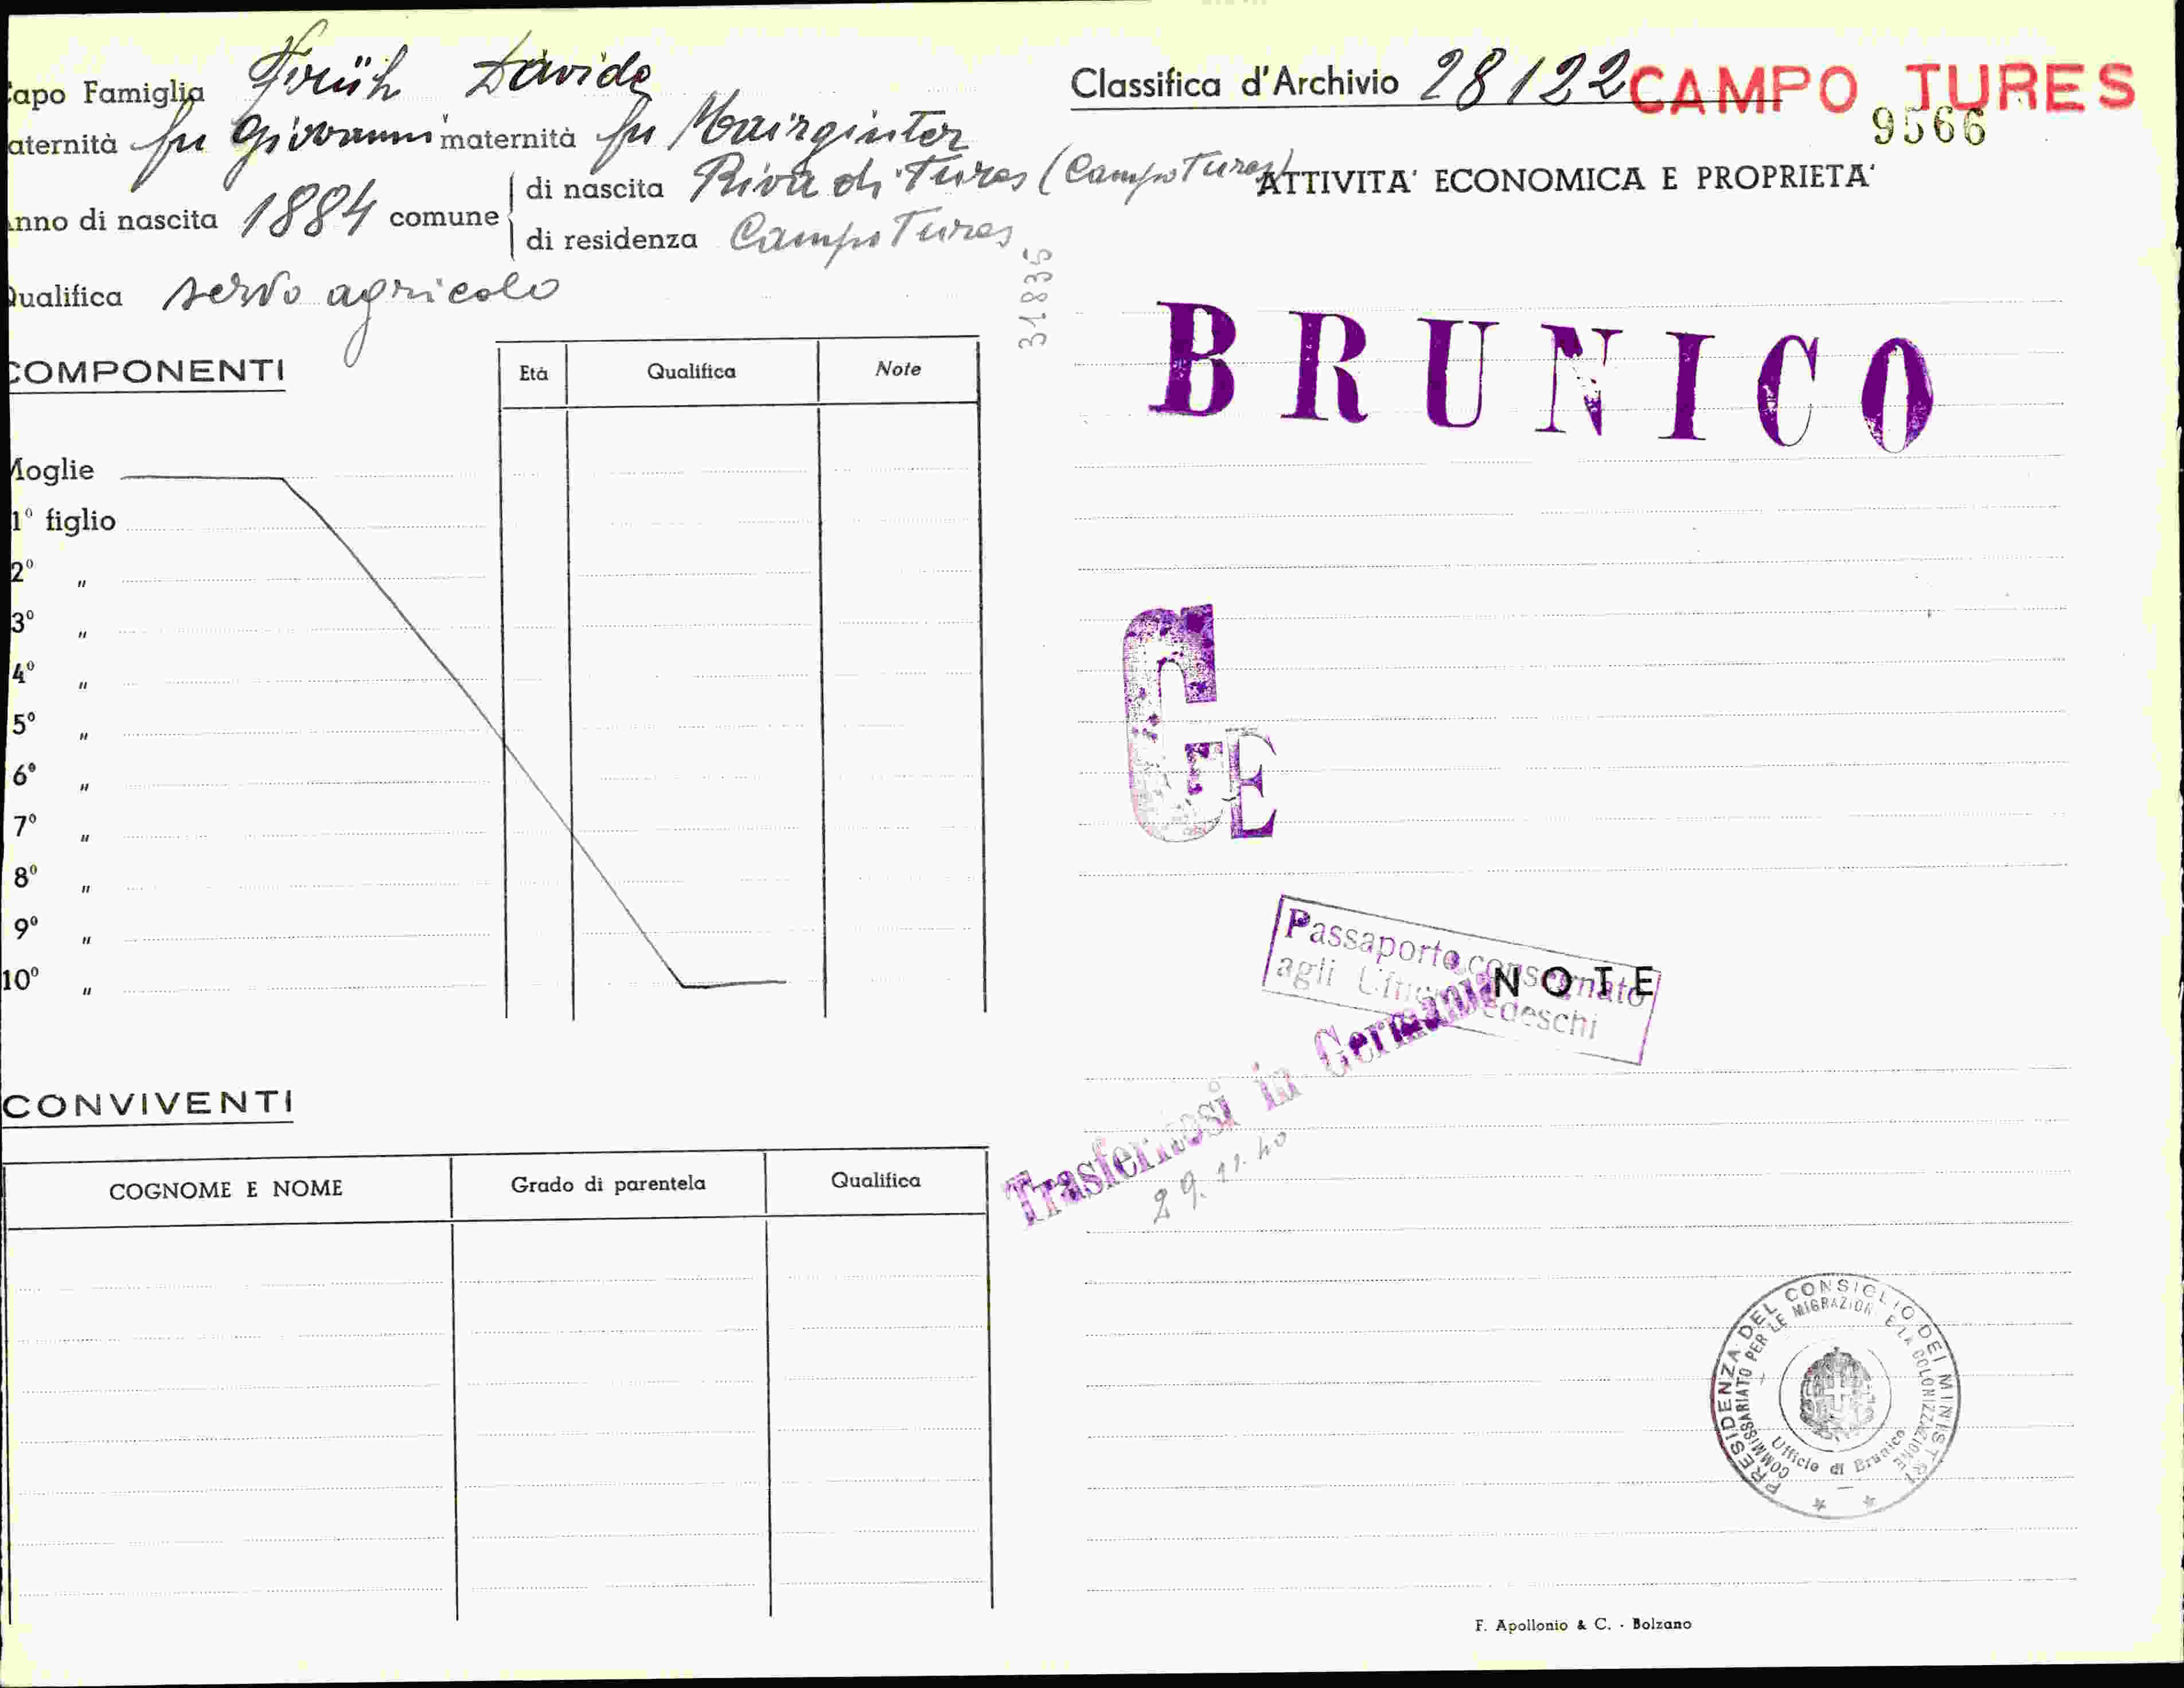 apo Famiglia Früh Davide
aternità fu Giovanni maternità fu Mairginter
nno di nascita 1884 comune di nascita Riva di Tures (Campo Tures)
di residenza Campo Tures
ualifica servo agricolo
COMPONENTI
Età Qualifica Note
Moglie
1º figlio
2º "
3º "
4º "
5º "
6º "
7º "
8º "
9º "
10º "
CONVIVENTI
COGNOME E NOME Grado di parentela Qualifica
31835
Classifica d'Archivio 28122 CAMPO TURES
9566
ATTIVITA' ECONOMICA E PROPRIETA'
BRUNICO
GE
Passaporto consegnato
agli Uffici Tedeschi
NOTE
Trasferitosi in Germania
29.11.40
PRESIDENZA DEL CONSIGLIO DEI MINISTRI
COMMISSARIATO PER LE MIGRAZIONI E LA COLONIZZAZIONE
Ufficio di Brunico
F. Apollonio & C. - Bolzano